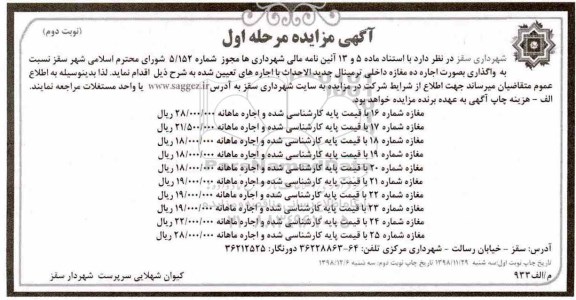 آگهی مزایده مرحله اول
(نوبت دوم)
شهرداری سقز در نظر دارد با استناد ماده ۵ و ۱۳ آئین نامه مالی شهرداری ها مجوز شماره ۵/۱۵۲ شورای محترم اسلامی شهر سقز نسبت
به واگذاری بصورت اجاره ده مغازه داخلی ترمینال جدید الاحداث با اجاره های تعیین شده به شرح ذیل اقدام نماید. لذا بدینوسیله به اطلاع
عموم متقاضیان میرساند جهت اطلاع از شرایط شرکت در مزایده به سایت شهرداری سقز به آدرس www.saggez.ir یا واحد مستغلات مراجعه نمایند.
الف - هزینه چاپ آگهی به عهده برنده مزایده خواهد بود.
مغازه شماره ۱۶ با قیمت پایه کارشناسی شده و اجاره ماهانه ۲۸/۰۰۰/۰۰۰ ریال
مغازه شماره ۱۷ با قیمت پایه کارشناسی شده و اجاره ماهانه ۲۱/۵۰۰/۰۰۰ ریال
مغازه شماره ۱۸ با قیمت پایه کارشناسی شده و اجاره ماهانه ۱۸/۰۰۰/۰۰۰ ریال
مغازه شماره ۱۹ با قیمت پایه کارشناسی شده و اجاره ماهانه ۱۸/۰۰۰/۰۰۰ ریال
مغازه شماره ۲۰ با قیمت پایه کارشناسی شده و اجاره ماهانه ۱۸/۰۰۰/۰۰۰ ریال
مغازه شماره ۲۱ با قیمت پایه کارشناسی شده و اجاره ماهانه ۱۹/۰۰۰/۰۰۰ ریال
مغازه شماره ۲۲ با قیمت پایه کارشناسی شده و اجاره ماهانه ۱۹/۰۰۰/۰۰۰ ریال
مغازه شماره ۲۳ با قیمت پایه کارشناسی شده و اجاره ماهانه ۱۹/۰۰۰/۰۰۰ ریال
مغازه شماره ۲۴ با قیمت پایه کارشناسی شده و اجاره ماهانه ۲۲/۰۰۰/۰۰۰ ریال
مغازه شماره ۲۵ با قیمت پایه کارشناسی شده و اجاره ماهانه ۲۸/۰۰۰/۰۰۰ ریال
آدرس: سقز - خیابان رسالت - شهرداری مرکزی تلفن: ۶۴-۳۶۲۲۸۸۶۳ دورنگار: ۳۶۲۱۲۵۲۵
تاریخ چاپ نوبت اول: سه شنبه ۱۳۹۸/۱۱/۲۹ تاریخ چاپ نوبت دوم: سه شنبه ۱۳۹۸/۱۲/۶
م/الف ۹۳۳
کیوان شهلایی سرپرست شهردار سقز